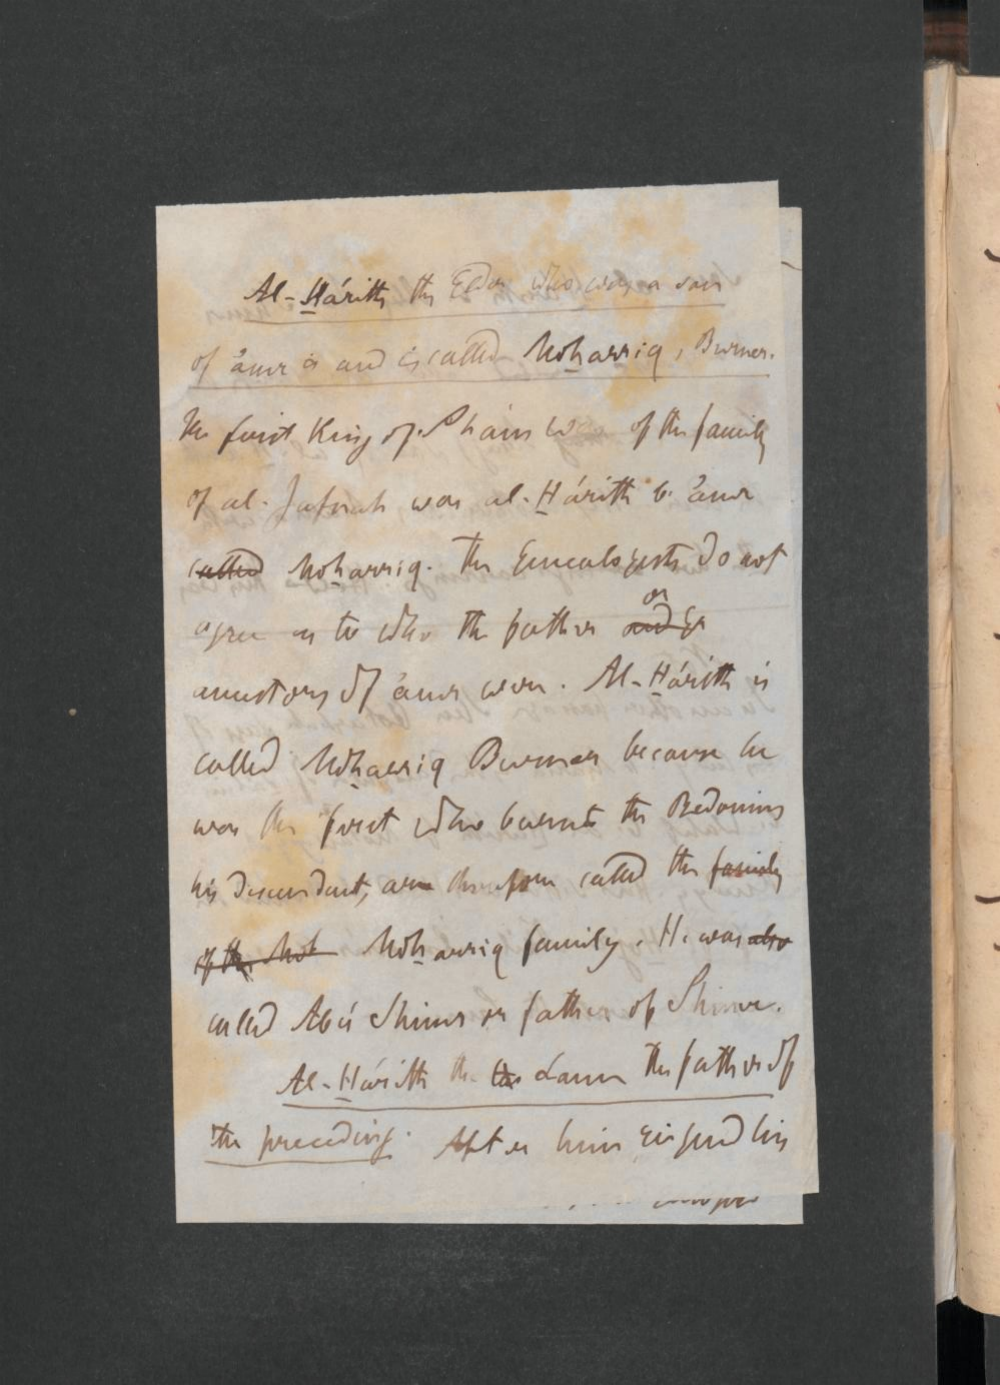 Al-Hárith the Elder who was a son
of 'amr is and is called Moharriq, Burner.
The first King of Sham was of the family
of al-Jafnah was al-Hárith b. 'amr
called Moharriq. The Genealogists do not
agree as to who the father and or
ancestors of 'amr were. Al-Hárith is
called Moharriq Burner because he
was the first who burnt the Bedouins
his descendant, are therefore called the family
of the Moh Moharriq family. He was also
called Abú Shimr or father of Shimr.
Al-Hárith the Lame the father of
the preceding. After him reigned his